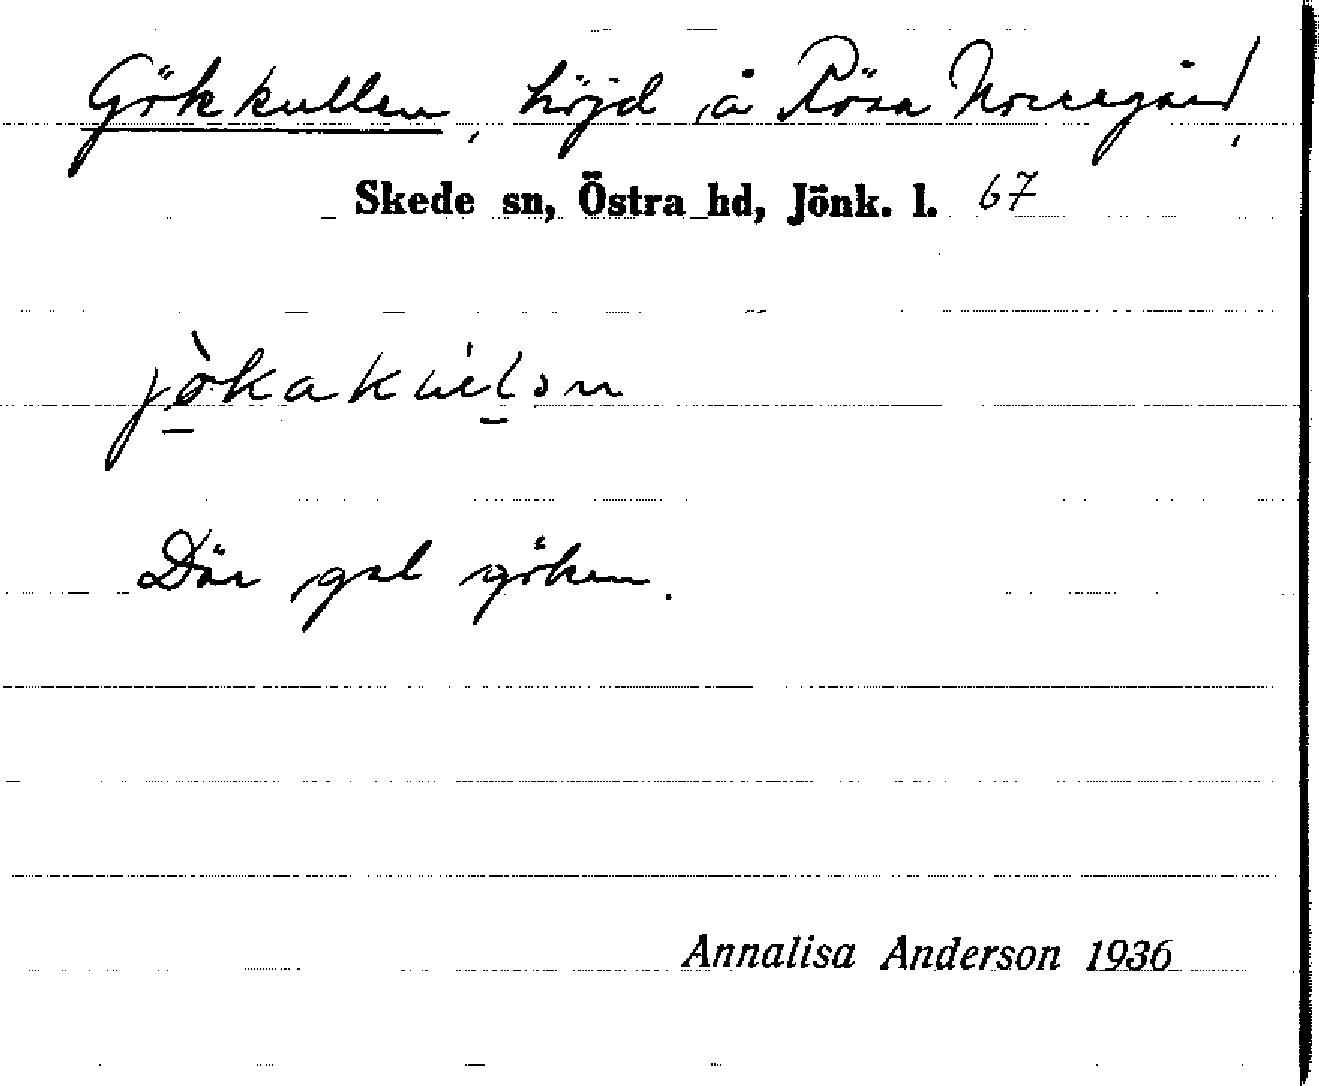 Gökkullen, höjd å Rösa Norregård,
Skede sn, Östra hd, Jönk. l. 67
jòkakúlən
Där gal göken.
Annalisa Anderson 1936